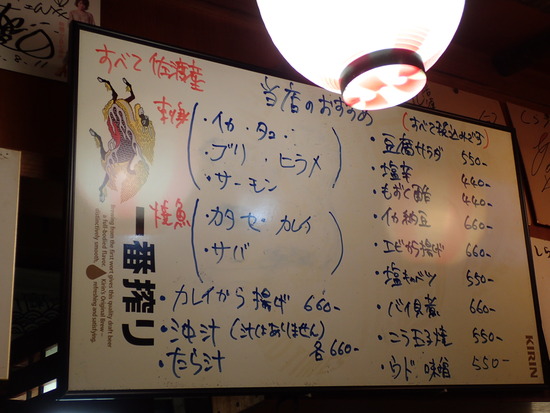 すべて佐渡産
当店のおすすめ
刺身
・イカ・タコ・
・ブリ・ヒラメ
・サーモン
焼魚
・カタセ・カレイ
・サバ
・カレイから揚げ 660-
・沖汁(汁はありません)
・たら汁 各660-
(すべて税込みです)
・豆腐サラダ 550-
・塩辛 440-
・もずく酢 440-
・イカ納豆 660-
・エビから揚げ 660-
・塩キャベツ 550-
・バイ貝煮 660-
・ニラ玉子焼 550-
・ウド味噌 550-
一番搾り
Brewing from the first wort gives this quality draft beer
a full-bodied flavor,
distinctively smooth.
Kirin's Original Brew -
refreshing and satisfying.
KIRIN
8.11